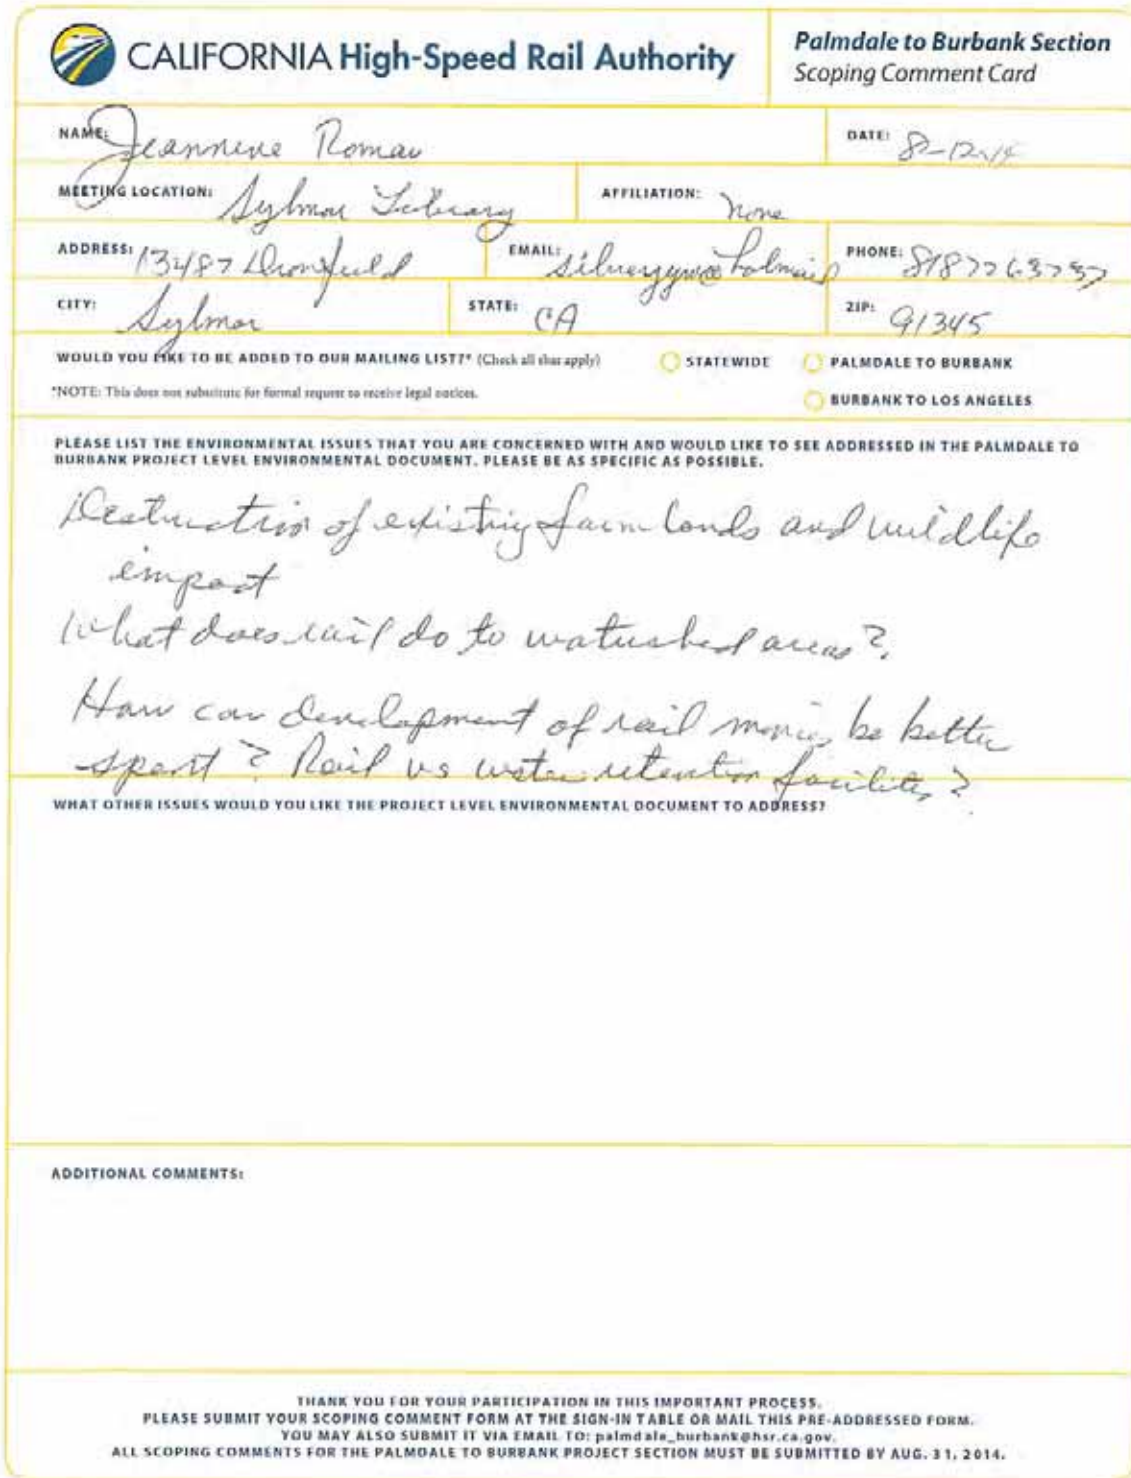 CALIFORNIA High-Speed Rail Authority
Palmdale to Burbank Section
Scoping Comment Card
NAME: Jeannene
DATE: 8-12-14
MEETING LOCATION: Sylmar Library
AFFILIATION: none
ADDRESS: 13487 Dronfield
EMAIL:
PHONE:
CITY: Sylmar
STATE: CA
ZIP: 91345
WOULD YOU LIKE TO BE ADDED TO OUR MAILING LIST?* (Check all that apply)
STATEWIDE
PALMDALE TO BURBANK
*NOTE: This does not substitute for formal request to receive legal notices.
BURBANK TO LOS ANGELES
PLEASE LIST THE ENVIRONMENTAL ISSUES THAT YOU ARE CONCERNED WITH AND WOULD LIKE TO SEE ADDRESSED IN THE PALMDALE TO
BURBANK PROJECT LEVEL ENVIRONMENTAL DOCUMENT. PLEASE BE AS SPECIFIC AS POSSIBLE.
Destruction of existing farm lands and wildlife
impact
What does rail do to watershed areas?
How can development of rail monies be better
spent? Rail vs water retention facilities?
WHAT OTHER ISSUES WOULD YOU LIKE THE PROJECT LEVEL ENVIRONMENTAL DOCUMENT TO ADDRESS?
ADDITIONAL COMMENTS:
THANK YOU FOR YOUR PARTICIPATION IN THIS IMPORTANT PROCESS.
PLEASE SUBMIT YOUR SCOPING COMMENT FORM AT THE SIGN-IN TABLE OR MAIL THIS PRE-ADDRESSED FORM.
YOU MAY ALSO SUBMIT IT VIA EMAIL TO: palmdale_burbank@hsr.ca.gov.
ALL SCOPING COMMENTS FOR THE PALMDALE TO BURBANK PROJECT SECTION MUST BE SUBMITTED BY AUG. 31, 2014.